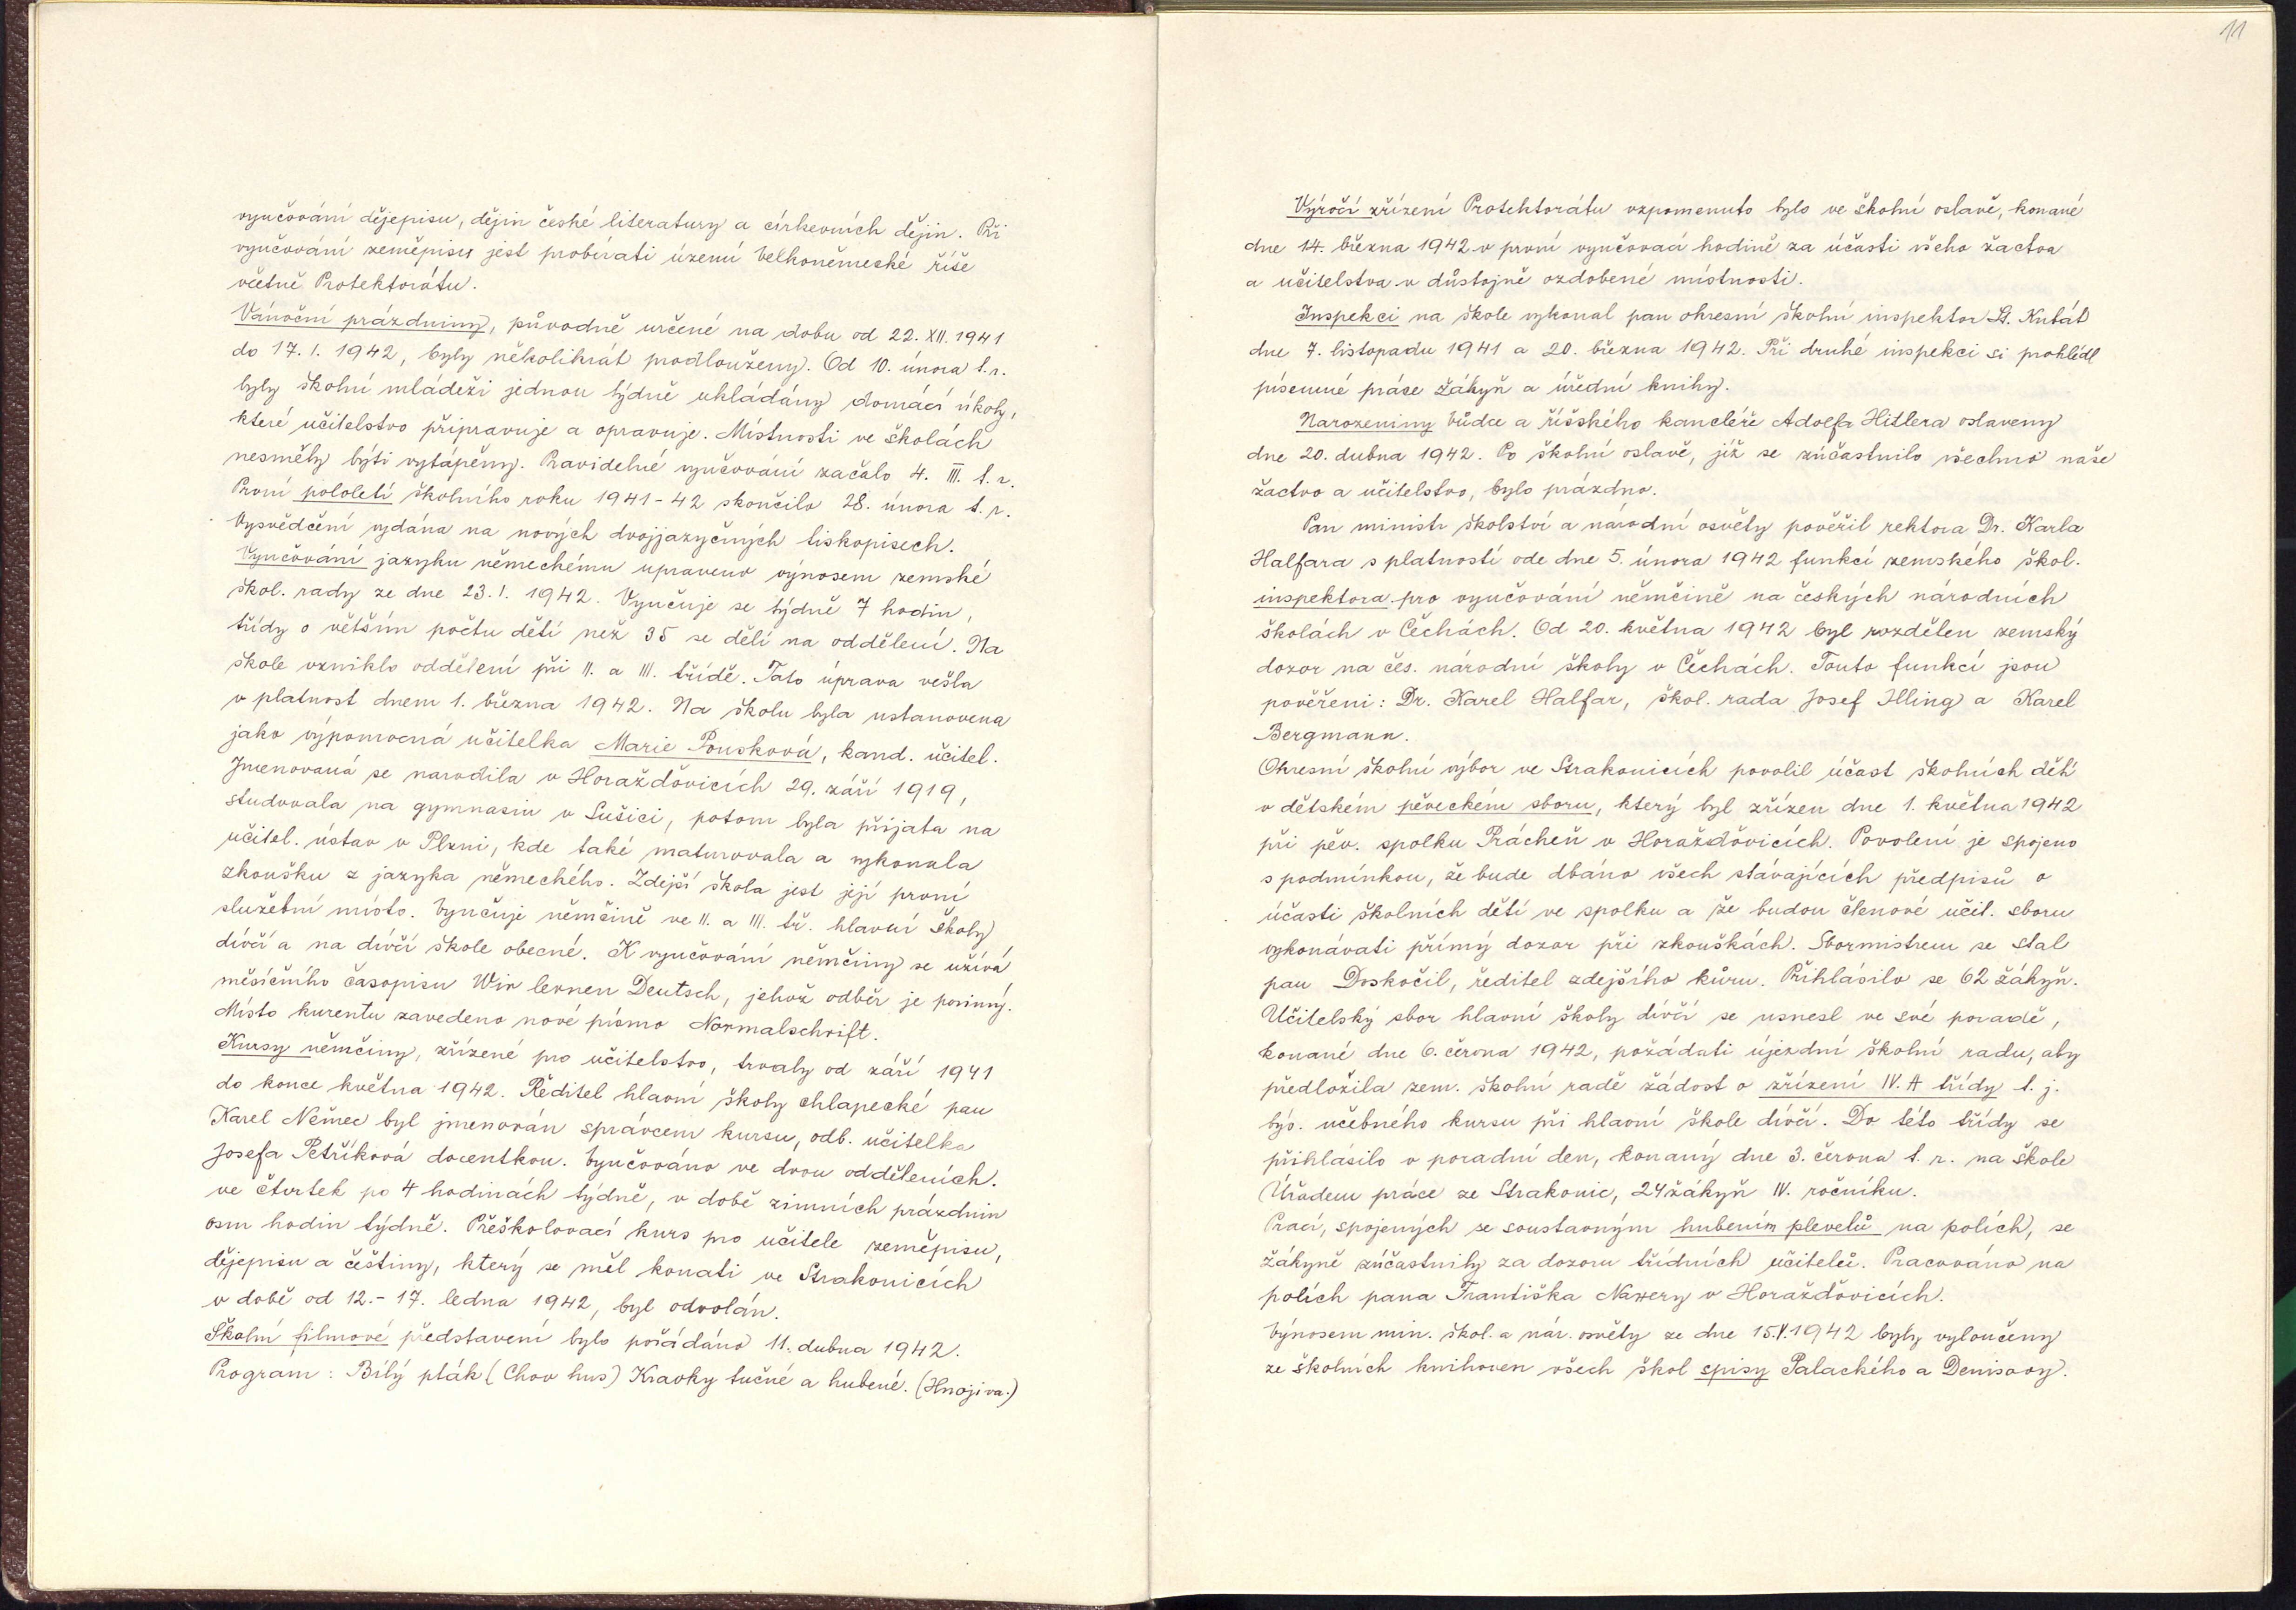 vyučování dějepisu, dějin české literatury a církevních dějin. Při
vyučování zeměpisu jest probírati území Velkoněmecké říše
včetně Protektorátu.
Vánoční prázdniny, původně určené na dobu od 22. XII. 1941
do 17. I. 1942, byly několikrát prodlouženy. Od 10. února t. r.
byly školní mládeži jednou týdně ukládány domácí úkoly,
které učitelstvo připravuje a opravuje. Místnosti ve školách
nesměly býti vytápěny. Pravidelné vyučování začalo 4. III. t. r.
První pololetí školního roku 1941-42 skončilo 28. února t. r.
Vysvědčení vydána na nových dvojjazyčných tiskopisech.
Vyučování jazyku německému upraveno výnosem zemské
škol. rady ze dne 23. I. 1942. Vyučuje se týdně 7 hodin,
třídy o větším počtu dětí než 35 se dělí na oddělení. Na
škole vzniklo oddělení při II. a III. třídě. Tato úprava vešla
v platnost dnem 1. března 1942. Na školu byla ustanovena
jako výpomocná učitelka Marie Pousková, kand. učitel.
Jmenovaná se narodila v Horažďovicích 29. září 1919,
studovala na gymnasiu v Sušici, potom byla přijata na
učitel. ústav v Plzni, kde také maturovala a vykonala
zkoušku z jazyka německého. Zdejší škola jest její první
služební místo. Vyučuje němčině ve II. a III. tř. hlavní školy
dívčí a na dívčí škole obecné. K vyučování němčiny se užívá
měsíčního časopisu Wir lernen Deutsch, jehož odběr je povinný.
Místo kurentu zavedeno nové písmo Normalschrift.
Kursy němčiny, zřízené pro učitelstvo, trvaly od září 1941
do konce května 1942. Ředitel hlavní školy chlapecké pan
Karel Němec byl jmenován správcem kursu, odb. učitelka
Josefa Petříková docentkou. Vyučováno ve dvou odděleních.
ve čtvrtek po 4 hodinách týdně, v době zimních prázdnin
osm hodin týdně. Přeškolovací kurs pro učitele zeměpisu,
dějepisu a češtiny, který se měl konati ve Strakonicích
v době od 12.- 17. ledna 1942, byl odvolán.
Školní filmové představení bylo pořádáno 11. dubna 1942.
Program: Bílý pták (Chov hus) Kravky tučné a hubené. (Hnojiva.)
11
Výročí zřízení Protektorátu vzpomenuto bylo ve školní oslavě, konané
dne 14. března 1942 v první vyučovací hodině za účasti všeho žactva
a učitelstva v důstojně ozdobené místnosti.
Inspekci na škole vykonal pan okresní školní inspektor St. Kubát
dne 7. listopadu 1941 a 20. března 1942. Při druhé inspekci si prohlédl
písemné práce žákyň a úřední knihy.
Narozeniny Vůdce a říšského kancléře Adolfa Hitlera oslaveny
dne 20. dubna 1942. Po školní oslavě, jíž se zúčastnilo všechno naše
žactvo a učitelstvo, bylo prázdno.
Pan ministr školství a národní osvěty pověřil rektora Dr. Karla
Halfara s platností ode dne 5. února 1942 funkcí zemského škol.
inspektora pro vyučování němčině na českých národních
školách v Čechách. Od 20. května 1942 byl rozdělen zemský
dozor na čes. národní školy v Čechách. Touto funkcí jsou
pověřeni: Dr. Karel Halfar, škol. rada Josef Illing a Karel
Bergmann.
Okresní školní výbor ve Strakonicích povolil účast školních dětí
v dětském pěveckém sboru, který byl zřízen dne 1. května 1942
při pěv. spolku Prácheň v Horažďovicích. Povolení je spojeno
s podmínkou, že bude dbáno všech stávajících předpisů o
účasti školních dětí ve spolku a že budou členové učit. sboru
vykonávati přímý dozor při zkouškách. Sbormistrem se stal
pan Doskočil, ředitel zdejšího kůru. Přihlásilo se 62 žákyň.
Učitelský sbor hlavní školy dívčí se usnesl ve své poradě,
konané dne 6. června 1942, požádati újezdní školní radu, aby
předložila zem. školní radě žádost o zřízení IV. A třídy t. j.
býv. učebného kursu při hlavní škole dívčí. Do této třídy se
přihlásilo v poradní den, konaný dne 3. června t. r. na škole
Úřadem práce ze Strakonic, 24 žákyň IV. ročníku.
Prací, spojených se soustavným hubením plevelů na polích, se
žákyně zúčastnily za dozoru třídních učitelů. Pracováno na
polích pana Františka Nawery v Horažďovicích.
Výnosem min. škol. a nár. osvěty ze dne 15.V.1942 byly vyloučeny
ze školních knihoven všech škol spisy Palackého a Denisovy.